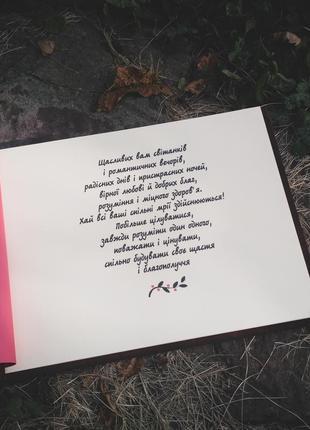 Щасливих вам світанків
і романтичних вечорів,
радісних днів і пристрасних ночей,
вірної любові й добрих благ,
розуміння і міцного здоров'я.
Хай всі ваші спільні мрії здійснюються!
Побільше цілуватися,
завжди розуміти один одного,
поважати і цінувати,
спільно будувати своє щастя
і благополуччя